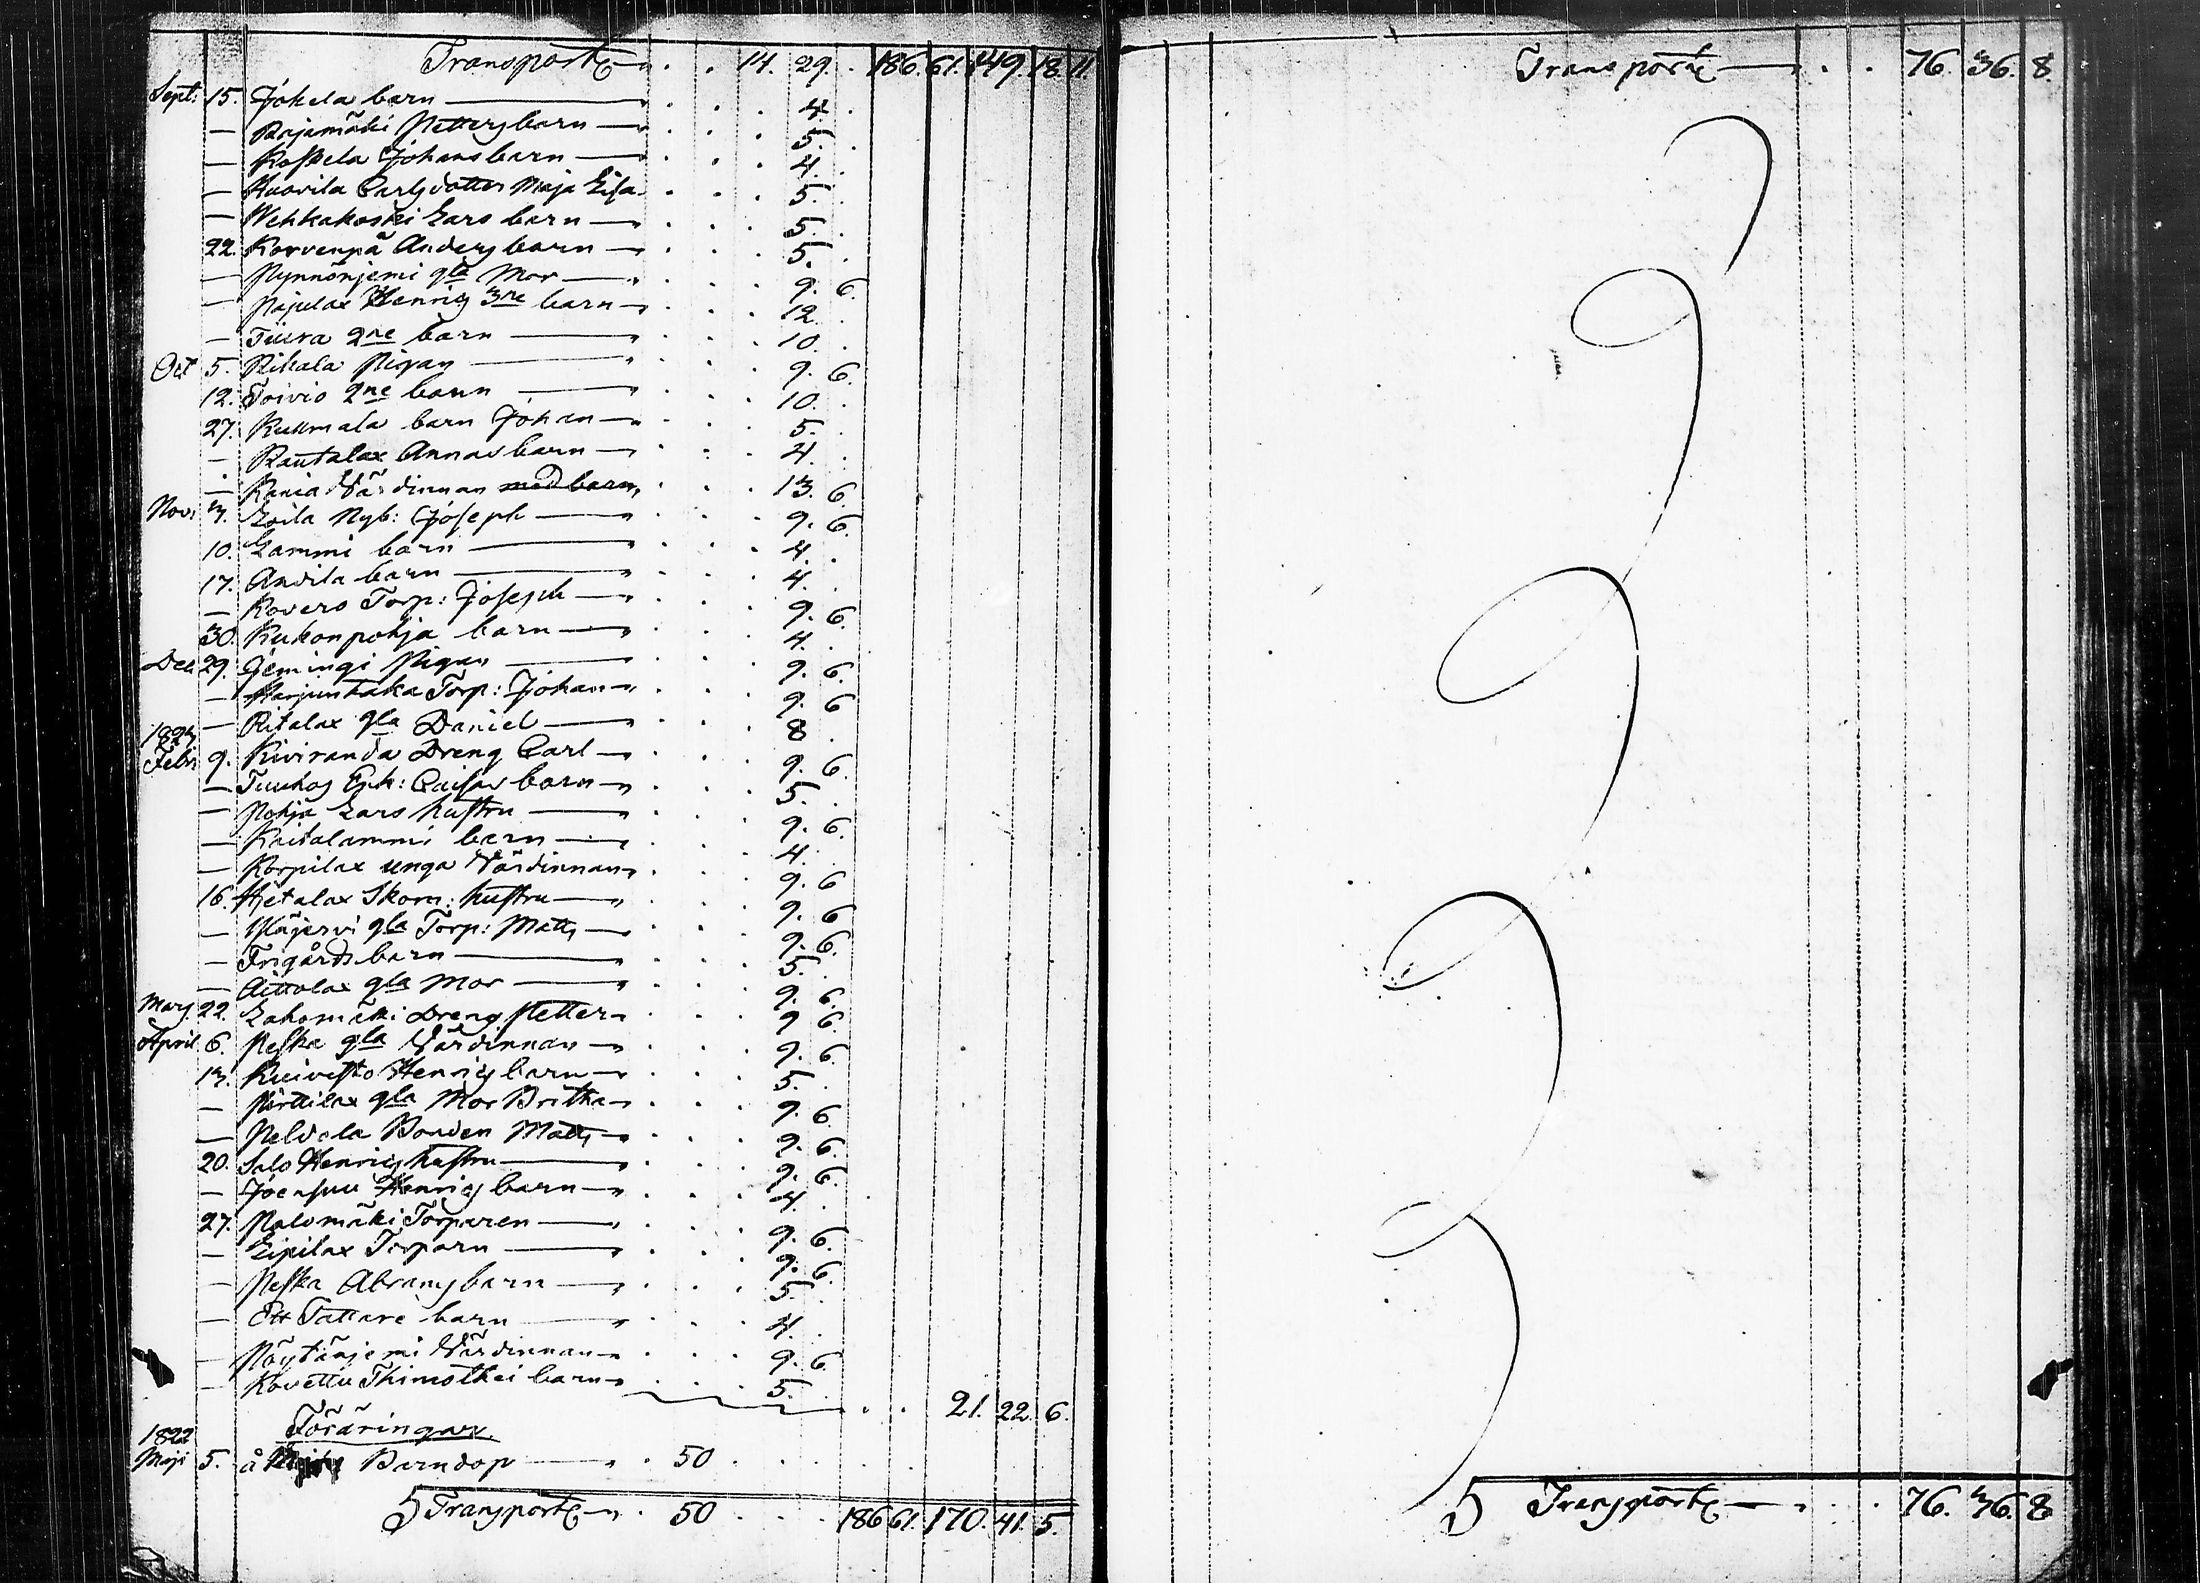 Transport . . 14. 29. . 186. 61. 149. 18. 11
Sept: 15. Jokela barn — . . . 4. .
— Rajamäki Petters barn — . . . 5. .
— Koskela Johans barn — . . . 4. .
— Huovila Carlsdotter Maja Lisa . . . 5. .
— Wehkakoski Lars barn — . . . 5. .
22. Korvenpä Anders barn — . . . 5. .
— Nynnönjemi gla Mor — . . . 9. 6.
— Pajulax Henrics 3ne barn — . . . 12. .
— Tiura 2ne barn — . . . 10. .
Oct 5. Rikala Pigan — . . . 9. 6.
12. Toivio 2ne barn — . . . 10. .
27. Kukmala barn Johan — . . . 5. .
— Rautalax Annas barn — . . . 4. .
— Rania Värdinnan med barn . . . 13. 6.
Nov: 3. Loila Nyb: Joseph — . . . 9. 6.
10. Lammi barn — . . . 4. .
17. Andila barn — . . . 4. .
— Rovero Torp: Joseph — . . . 9. 6.
30. Kukonpohja barn — . . . 4. .
Dec 29. Jemingi Pigan — . . . 9. 6.
— Harjuntaka Torp: Johan — . . . 9. 6
— Ritalax gla Daniel — . . . 8 .
1823
Febr: 9. Kiviranda Dreng Carl — . . . 9. 6.
— Tuuhos Enk: Caisas barn — . . . 5. .
— Pohja Lars hustru — . . . 9. 6.
— Kaitalammi barn — . . . 4. .
— Korpilax unga Värdinnan . . . 9. 6
16. Hietalax Skom: hustru — . . . 9. 6
— Yläjervi gla Torp: Matts — . . . 9. 6.
— Frigårds barn — . . . 5. .
— Aittolax gla Mor — . . . 9. 6.
Mars 22. Lahomäki Dreng Petter . . . 9 6.
April 6. Peska gla Värdinnan — . . . 9. 6.
13. Kuivisto Henrics barn — . . . 5. .
— Pirttilax gla Mor Britha . . . 9. 6.
— Peldola Bonden Matts — . . . 9. 6.
20. Salo Henrics hustru — . . . 9. 6.
— Joensuu Henrics barn — . . . 4. .
27. Palomäki Torparen — . . . 9. 6.
— Lipilax Torparn — . . . 9. 6.
— Peska Abrams barn — . . . 5. .
— Ett Tattare barn — . . . 4. .
— Pöytänjemi Värdinnan . . . 9. 6.
— Kovettu Thimothei barn . . . 5. . . . 21. 22. 6.
Föräringar.
1822
Maji 5. å Barndop — . 50 . . .
S Transport . 50 . . . 186 61. 170. 41. 5.
Transport — . . 76. 36. 8.
S Transport — . . 76. 36. 8